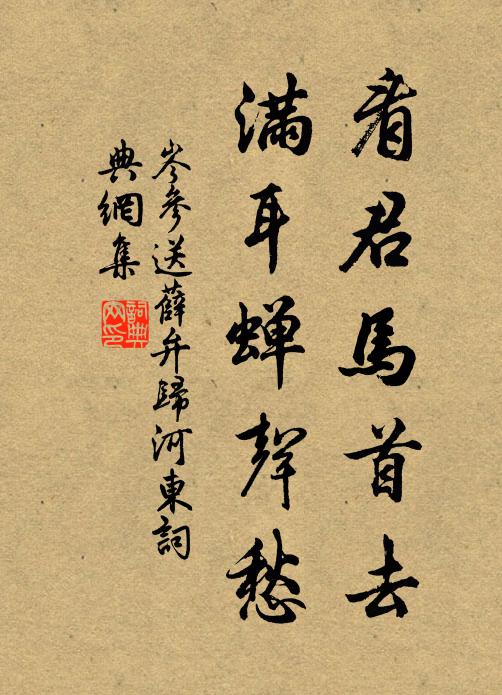 看君馬首去
滿耳蟬聲愁
岑參送薛弁歸河東詞
典網集
詞典
网印